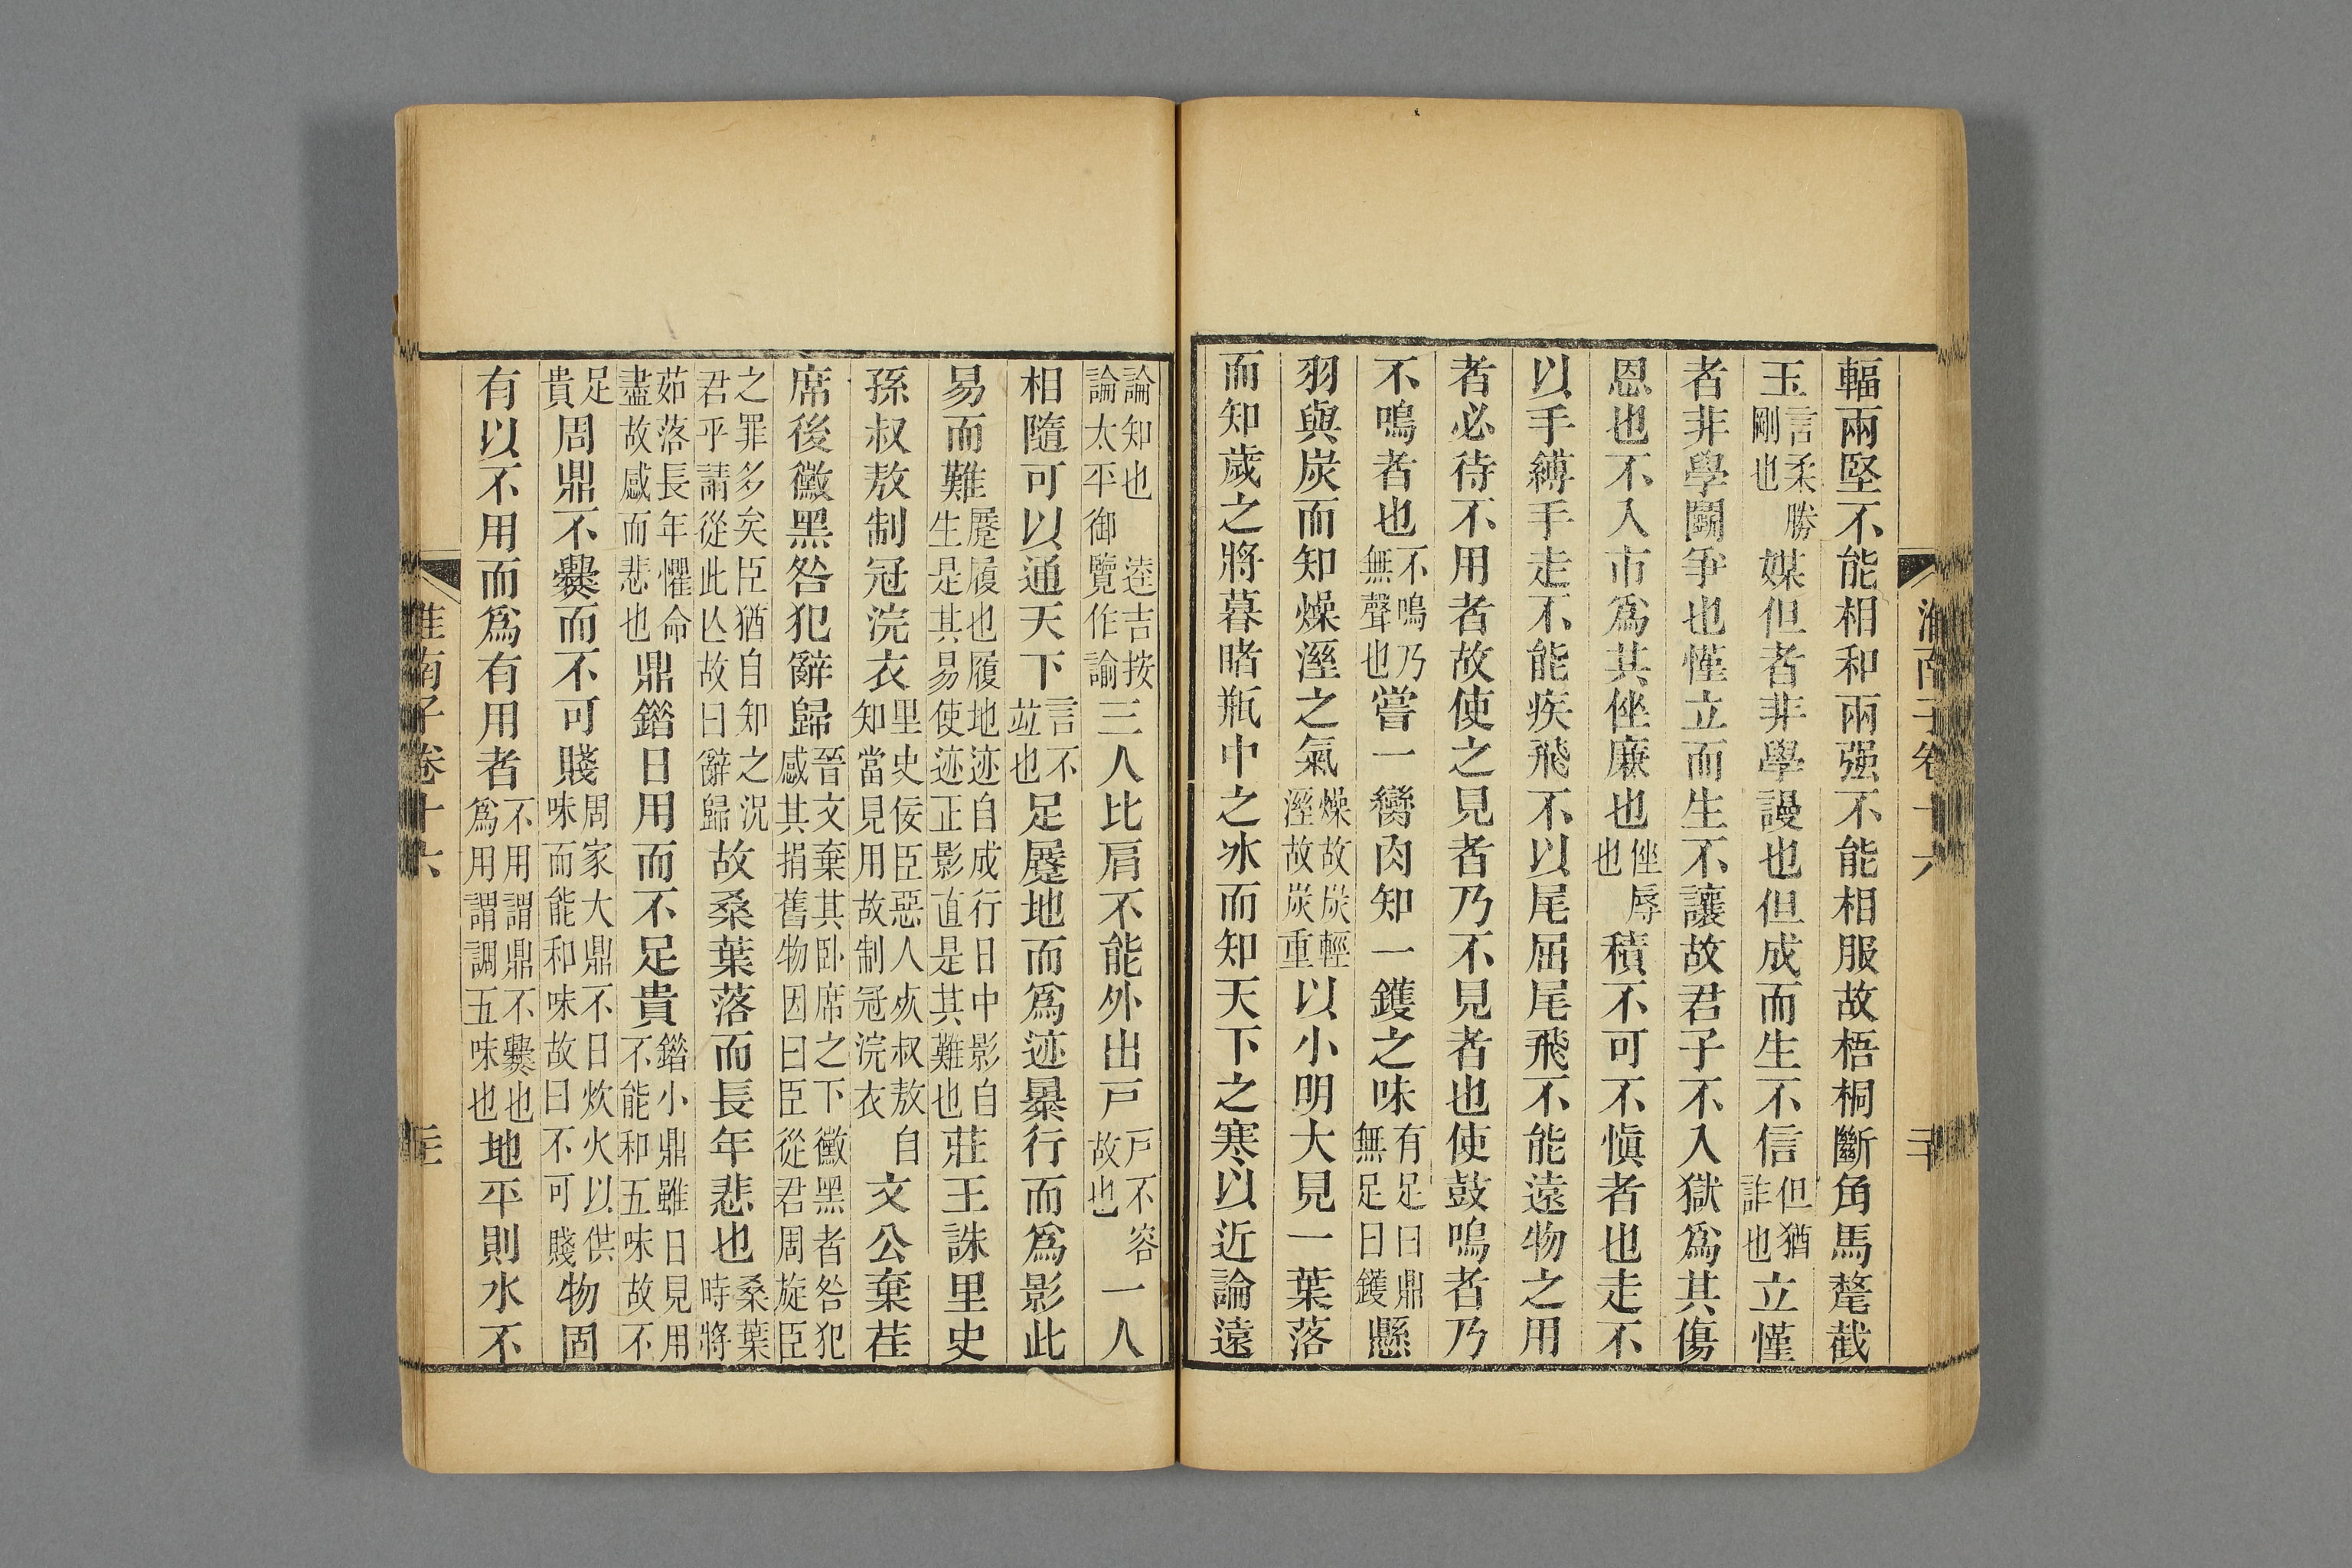 淮南子卷十六
二十
輻兩堅不能相和兩强不能相服故梧桐斷角馬氂截
玉言柔勝剛也媒但者非學謾也但成而生不信但猶詐也立慬
者非學鬭爭也慬立而生不讓故君子不入獄爲其傷
恩也不入市爲其侳廉也侳辱也積不可不愼者也走不
以手縛手走不能疾飛不以尾屈尾飛不能遠物之用
者必待不用者故使之見者乃不見者也使鼓鳴者乃
不鳴者也不鳴乃無聲也嘗一臠肉知一鑊之味有足曰鼎無足曰鑊懸
羽與炭而知燥溼之氣燥故炭輕溼故炭重以小明大見一葉落
而知歲之將暮睹瓶中之冰而知天下之寒以近論遠
論知也　逵吉按論太平御覽作諭三人比肩不能外出戸戸不容故也一人
相隨可以通天下言不竝也足蹷地而爲迹暴行而爲影此
易而難蹷履也履地迹自成行日中影自生是其易使迹正影直是其難也莊王誅里史
孫叔敖制冠浣衣里史佞臣惡人死叔敖自知當見用故制冠浣衣文公棄荏
席後黴黑咎犯辭歸晉文棄其臥席之下黴黑者咎犯感其捐舊物因曰臣從君周旋臣
之罪多矣臣猶自知之況君乎請從此亾故曰辭歸故桑葉落而長年悲也桑葉時將
茹落長年懼命盡故感而悲也鼎錯日用而不足貴錯小鼎雖日見用不能和五味故不
足貴周鼎不爨而不可賤周家大鼎不日炊火以供味而能和味故曰不可賤物固
有以不用而爲有用者不用謂鼎不爨也爲用謂調五味也地平則水不
淮南子卷十六